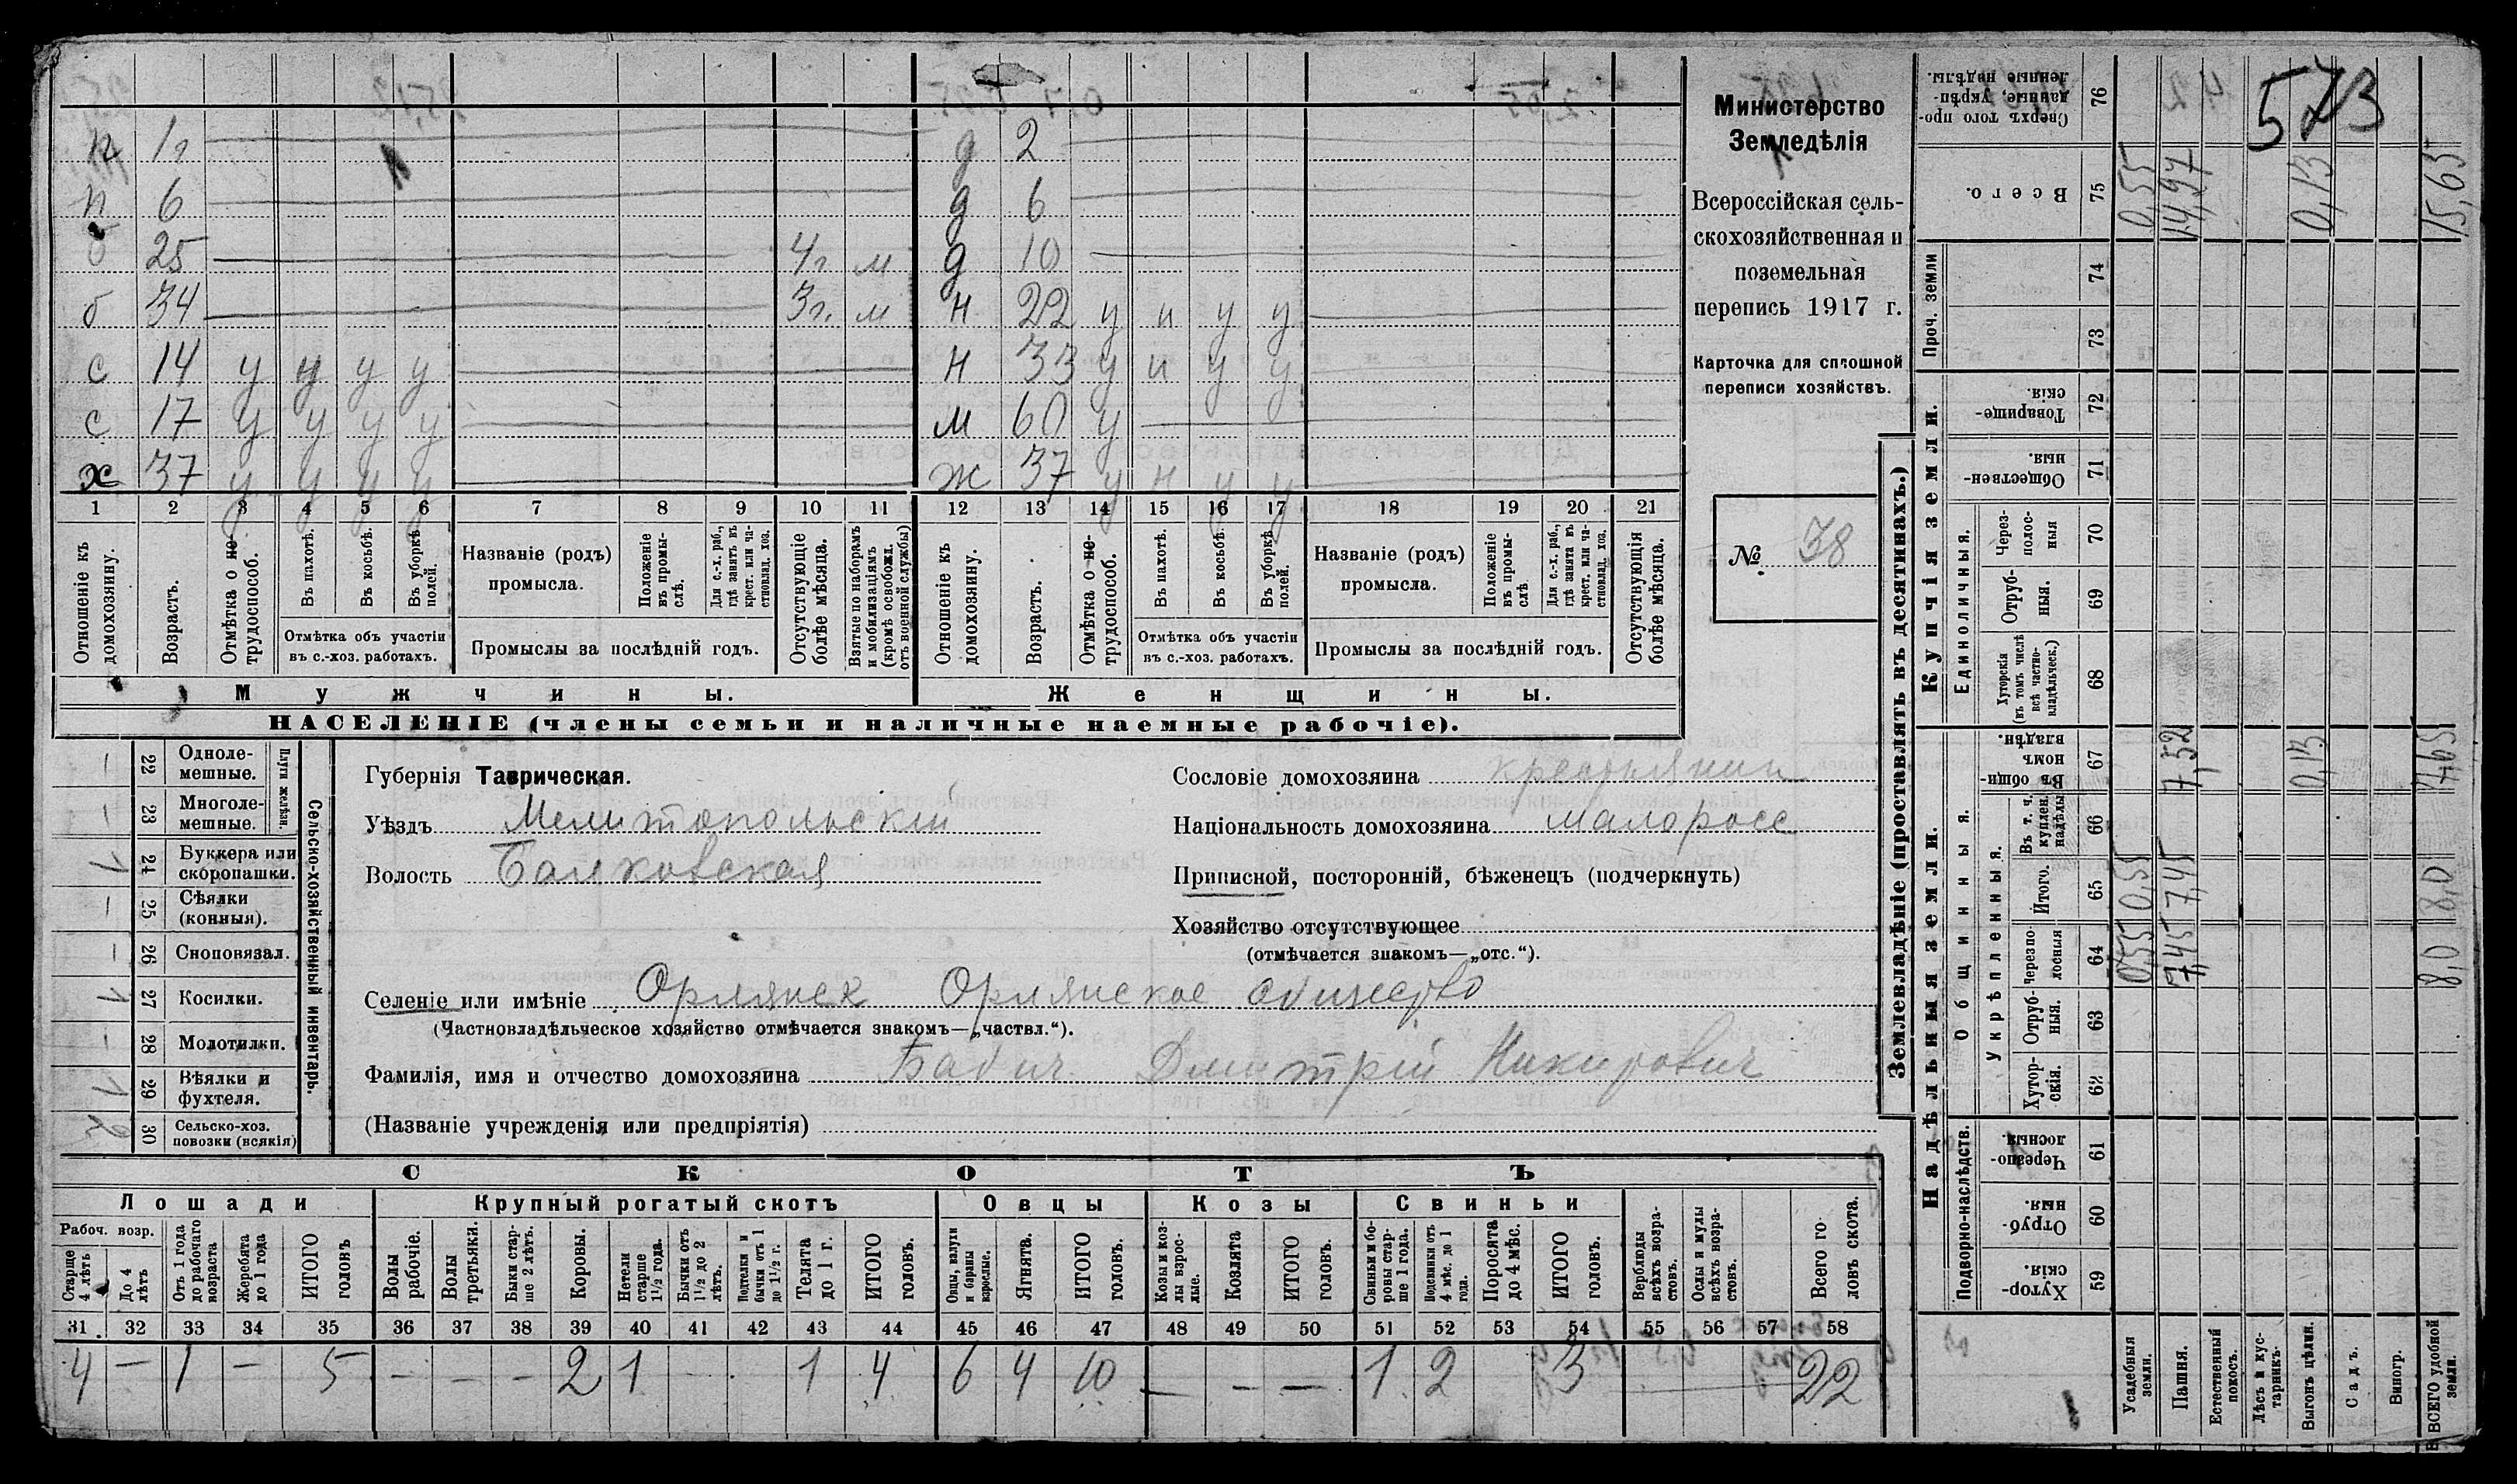 573
п 1 г д 2
п 6 д 6
б 25 4 г. м д 10
б 34 3 г. м н 22 у н у у
с 14 у у у у н 33 у н у у
с 17 у у у у м 60 у
х 37 у у у у ж 37 у н у у
1 2 3 4 5 6 7 8 9 10 11 12 13 14 15 16 17 18 19 20 21
Отношеніе къ домохозяину.
Возрастъ.
Отмѣтка о не-трудоспособ.
Въ пахотѣ.
Въ косьбѣ.
Въ уборкѣ полей.
Отмѣтка объ участіи въ с.-хоз. работахъ.
Названіе (родъ) промысла.
Положеніе въ промы-слѣ.
Для с.-х. раб., гдѣ занятъ въ крест. или ча-стновлад. хоз.
Промыслы за послѣдній годъ.
Отсутствующіе болѣе мѣсяца.
Взятые по наборамъ и мобилизаціямъ (кромѣ освобожд. отъ военной службы)
Отношеніе къ домохозяину.
Возрастъ.
Отмѣтка о не-трудоспособ.
Въ пахотѣ.
Въ косьбѣ.
Въ уборкѣ полей.
Отмѣтка объ участіи въ с.-хоз. работахъ.
Названіе (родъ) промысла.
Положеніе въ промы-слѣ
Для с.-х. раб., гдѣ занята въ крест. или ча-стновлад. хоз.
Промыслы за послѣдній годъ.
Отсутствующія болѣе мѣсяца.
Мужчины. Женщины.
НАСЕЛЕНІЕ (члены семьи и наличные наемные рабочіе).
Министерство
Земледѣлія
Всероссійская сель-
скохозяйственная и
поземельная
перепись 1917 г.
Карточка для сплошной
переписи хозяйствъ.
№ 38
Сельско-хозяйственный инвентарь.
Плуги желѣзн.
— 22 Одноле-мешные.
— 23 Многоле-мешные.
1 24 Буккера или скоропашки.
— 25 Сѣялки (конныя).
— 26 Сноповязал.
1 27 Косилки.
— 28 Молотилки.
1 29 Вѣялки и фухтеля.
2 30 Сельско-хоз. повозки (всякія)
Губернія Таврическая.
Уѣздъ Мелитопольскій
Волость Балковская
Сословіе домохозяина крестьянин
Національность домохозяина малоросс
Приписной, посторонній, бѣженецъ (подчеркнуть)
Хозяйство отсутствующее
(отмѣчается знакомъ—„отс.“).
Селеніе или имѣніе Орлянск Орлянское общество
(Частновладѣльческое хозяйство отмѣчается знакомъ—„частвл.“).
Фамилія, имя и отчество домохозяина Бабич Дмитрій Никирович
(Названіе учрежденія или предпріятія)
СКОТЪ
Лошади Крупный рогатый скотъ Овцы Козы Свиньи
Рабоч. возр.
Старше 4 лѣтъ
До 4 лѣтъ
Отъ 1 года до рабочаго возраста
Жеребята до 1 года
ИТОГО головъ
Волы рабочіе.
Волы третьяки.
Быки стар-ше 2 лѣтъ.
Коровы.
Нетели старше 1½ года.
Бычки отъ 1½ до 2 лѣтъ.
Подтелки и бычки отъ 1 до 1½ г.
Телята до 1 г.
ИТОГО головъ.
Овцы, валухи и бараны взрослые.
Ягнята.
ИТОГО головъ.
Козы и коз-лы взрос-лые.
Козлята
ИТОГО головъ.
Свиньи и бо-ровы стар-ше 1 года.
Подсвинки отъ 4 мѣс. до 1 года.
Поросята до 4 мѣс.
ИТОГО головъ.
Верблюды всѣхъ возра-стовъ.
Ослы и мулы всѣхъ возра-стовъ.
Всего го-ловъ скота.
31 32 33 34 35 36 37 38 39 40 41 42 43 44 45 46 47 48 49 50 51 52 53 54 55 56 57 58
4 — 1 — 5 — — — 2 1 — 1 4 6 4 10 — — — 1 2 3 22
Землевладѣніе (проставлять въ десятинахъ.)
Купчія земли.
Надѣльныя земли.
Сверхъ того про-данные, укрѣп-ленные надѣлы. 76
Всего. 75 0,55 14,97 0,13 15,65
Проч. земли
74
73
Товарище-скія 72
Обществен-ныя. 71
Единоличныя.
Через-полос-ныя 70
Отруб-ныя. 69
Хуторскія (въ томъ числѣ всѣ частно-владѣльческ.) 68
Общинныя.
Въ общи-номъ владѣн. 67 7,52 0,13 7,65
Укрѣпленныя.
Въ т. ч. куплен. надѣлы 66
Итого. 65 0,55 7,45 8,0
Черезпо-лосныя 64 0,55 7,45 8,0
Отруб-ныя. 63
Хутор-скія. 62
Подворно-наслѣдств.
Черезпо-лосныя. 61
Отруб-ныя. 60
Хутор-скія. 59
Усадебныя земли.
Пашня.
Естественный покосъ.
Лѣсъ и кус-тарникъ.
Выгонъ цѣлин.
Садъ.
Виногр.
ВСЕГО удобной земли.